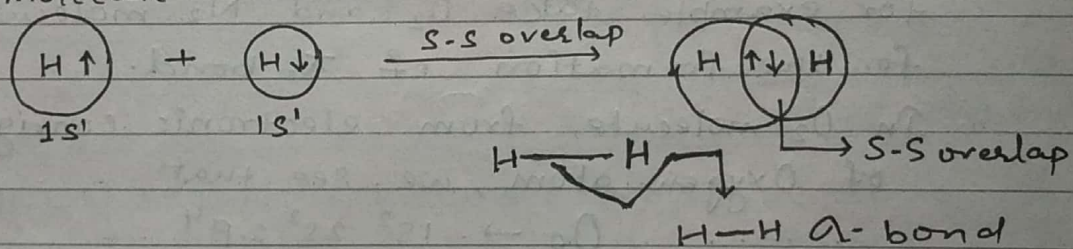 H ↑ + H ↓ S-S overlap H ↑↓ H
1S' 1S'
S-S overlap
H — H
H—H a-bond